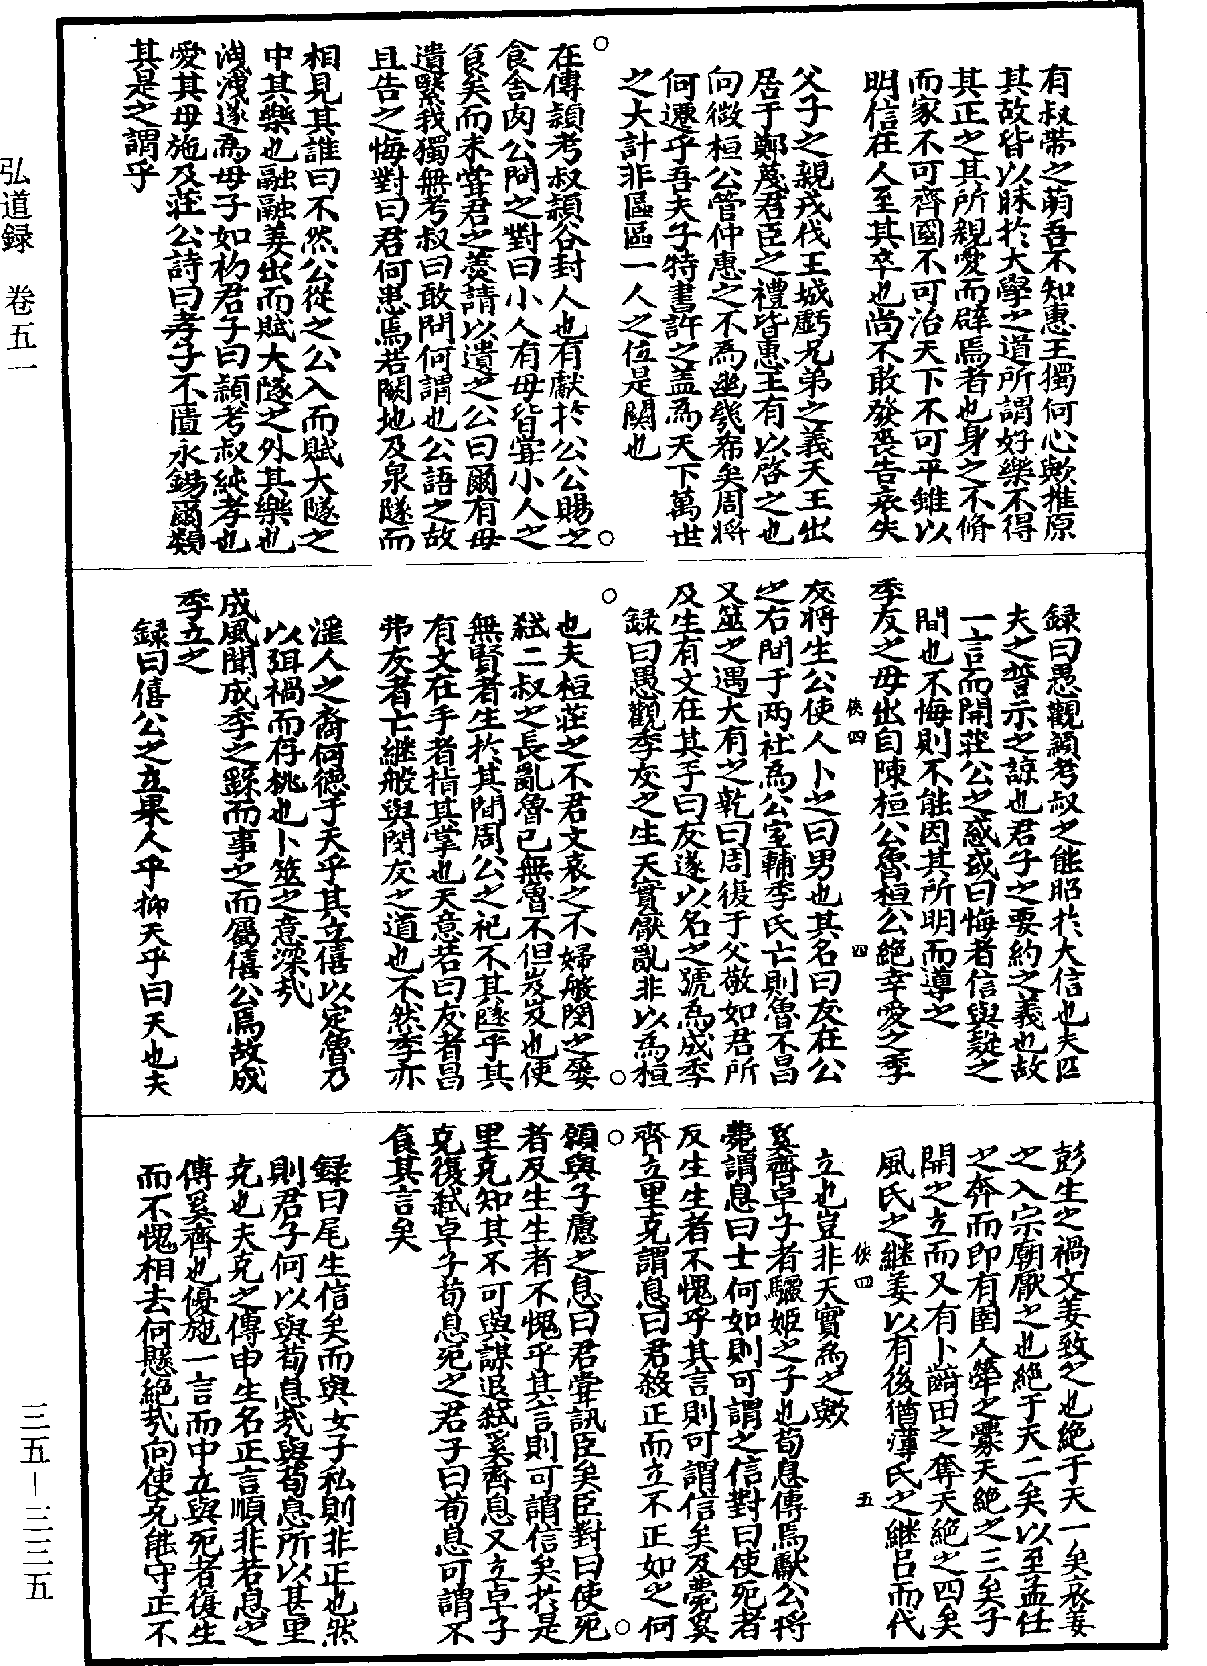 有叔帶之萌吾不知惠王獨何心歟推原
其故皆以昧於大學之道所謂好樂不得
其正之其所親愛而辟焉者也身之不脩
而家不可齊國不可治天下不可平雖以
明信在人至其卒也尚不敢發喪告哀失
父子之親戎伐王城虧兄弟之義天王出
居于鄭蔑君臣之禮皆惠王有以啓之也
向微桓公管仲惠之不為幽幾希矣周將
何遷乎吾夫子特書許之盖為天下萬世
之大計非區區一人之位是關也
○在傳潁考叔潁谷封人也有獻於公公賜之
食舍肉公問之對曰小人有母皆嘗小人之
食矣而未嘗君之羹請以遺之公曰爾有母
遺繄我獨無考叔曰敢問何謂也公語之故
且告之悔對曰君何患焉若闕地及泉隧而
相見其誰曰不然公從之公入而賦大隧之
中其樂也融融姜出而賦大隧之外其樂也
洩洩遂為母子如初君子曰潁考叔純孝也
愛其母施及莊公詩曰孝子不匱永錫爾類
其是之謂乎
録曰愚觀潁考叔之能昭於大信也夫匹
夫之誓示之諒也君子之要約之義也故
一言而開莊公之惑或曰悔者信與鼗之
間也不悔則不能因其所明而導之
○季友之母出自陳桓公魯桓公絶幸愛之季
友將生公使人卜之曰男也其名曰友在公
之右間于两社為公室輔季氏亡則魯不昌
又筮之遇大有之乾曰周復于父敬如君所
及生有文在其手曰友遂以名之號為成季
録曰愚觀季友之生天實厭亂非以為桓
也夫桓莊之不君文哀之不婦般閔之屡
弒二叔之長亂魯已無魯不但岌岌也使
無賢者生於其間周公之祀不其隧乎其
有文在手者指其掌也天意若曰友者昌
弗友者亡継般與閔友之道也不然季亦
淫人之裔何德于天乎其立僖以定魯乃
以弭禍而存桃也卜筮之意深㢤
○成風聞成季之繇而事之而屬僖公焉故成
季立之
録曰僖公之立果人乎抑天乎曰天也夫
彭生之禍文姜致之也絶于天一矣哀姜
之入宗廟厭之也絶于天二矣以至孟任
之奔而即有圉人犖之釁天絶之三矣子
開之立而又有卜齮田之奪天絶之四矣
風氏之継姜以有後猶薄氏之継吕而代
立也豈非天實為之歟
○奚齊卓子者驪姬之子也荀息傳焉獻公將
薨謂息曰士何如則可謂之信對曰使死者
反生生者不愧乎其言則可謂信矣及薨奚
齊立里克謂息曰君殺正而立不正如之何
願與子慮之息曰君嘗訊臣矣臣對曰使死
者反生生者不愧乎其言則可謂信矣於是
里克知其不可與謀退弒奚齊息又立卓子
克復弒卓子荀息死之君子曰荀息可謂不
食其言矣
録曰尾生信矣而與女子私則非正也然
則君子何以與荀息㢤與荀息所以甚里
克也夫克之傳申生名正言順非若息之
傳奚齊也優施一言而中立與死者復生
而不愧相去何懸絶㢤向使克能守正不
俠四
四
俠四
五
弘道録　卷五一
三五－三三五